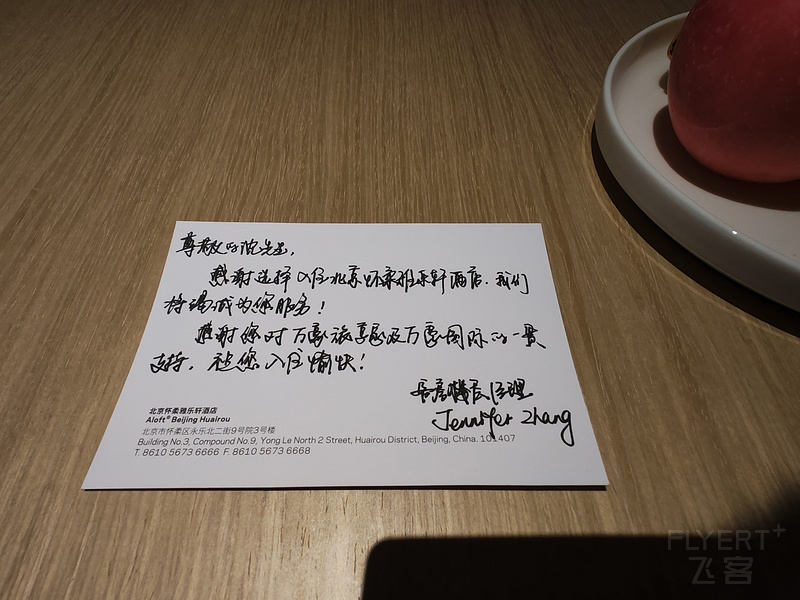 尊敬的沈先生,
感谢选择入住北京怀柔雅乐轩酒店.我们
将竭诚为您服务!
感谢您对万豪旅享家及万豪国际的一贯
支持,祝您入住愉快!
客房楼层经理
Jennifer Zhang
北京怀柔雅乐轩酒店
Aloft® Beijing Huairou
北京市怀柔区永乐北二街9号院3号楼
Building No.3, Compound No.9, Yong Le North 2 Street, Huairou District, Beijing, China. 101407
T. 8610 5673 6666 F. 8610 5673 6668
FLYERT+
飞客